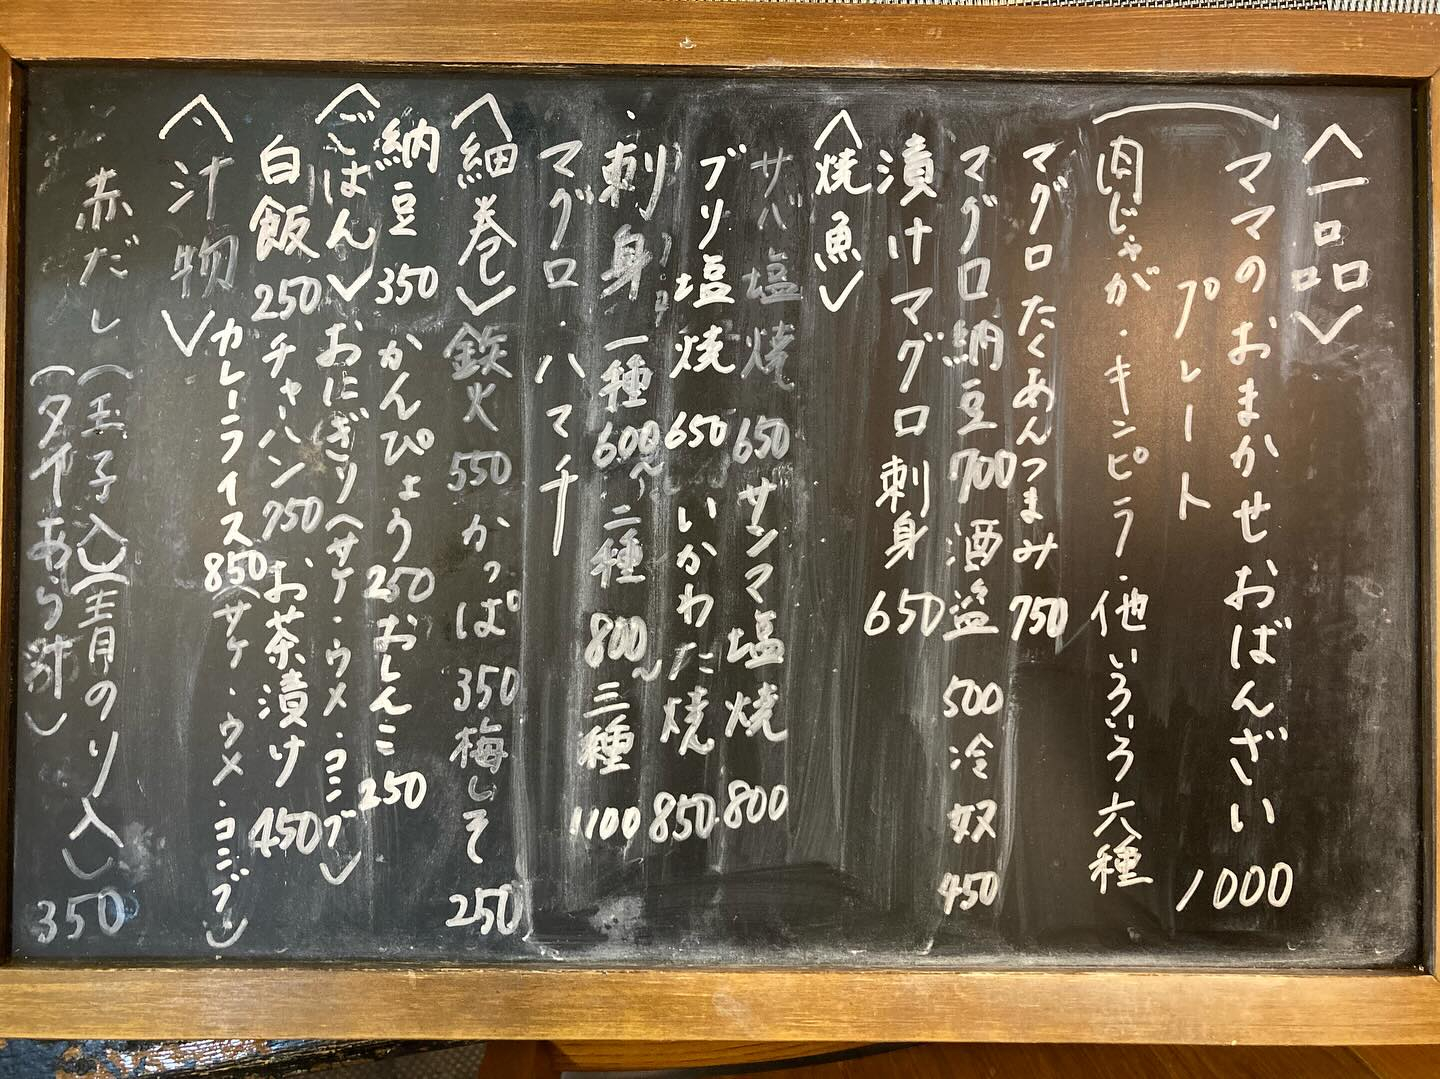 〈一品〉
ママのおまかせおばんざい
プレート 1000
肉じゃが・キンピラ・他いろいろ六種
マグロたくあんつまみ 750
マグロ納豆 700 酒盗 500 冷奴 450
漬けマグロ刺身 650
〈焼魚〉
サバ塩焼 650 サンマ塩焼 800
ブリ塩焼 650 いかわた焼 850
・刺身 一種 600〜 二種 800〜 三種 1100
マグロ・ハマチ
〈細巻〉鉄火 550 かっぱ 350 梅しそ 250
納豆 350 かんぴょう 250 おしんこ 250
〈ごはん〉おにぎり(サケ・ウメ・コンブ)
白飯 250 チャーハン 750 お茶漬け 450
カレーライス 850 (サケ・ウメ・コンブ)
〈汁物〉
赤だし(玉子入)(青のり入)
(タイあら汁) 350